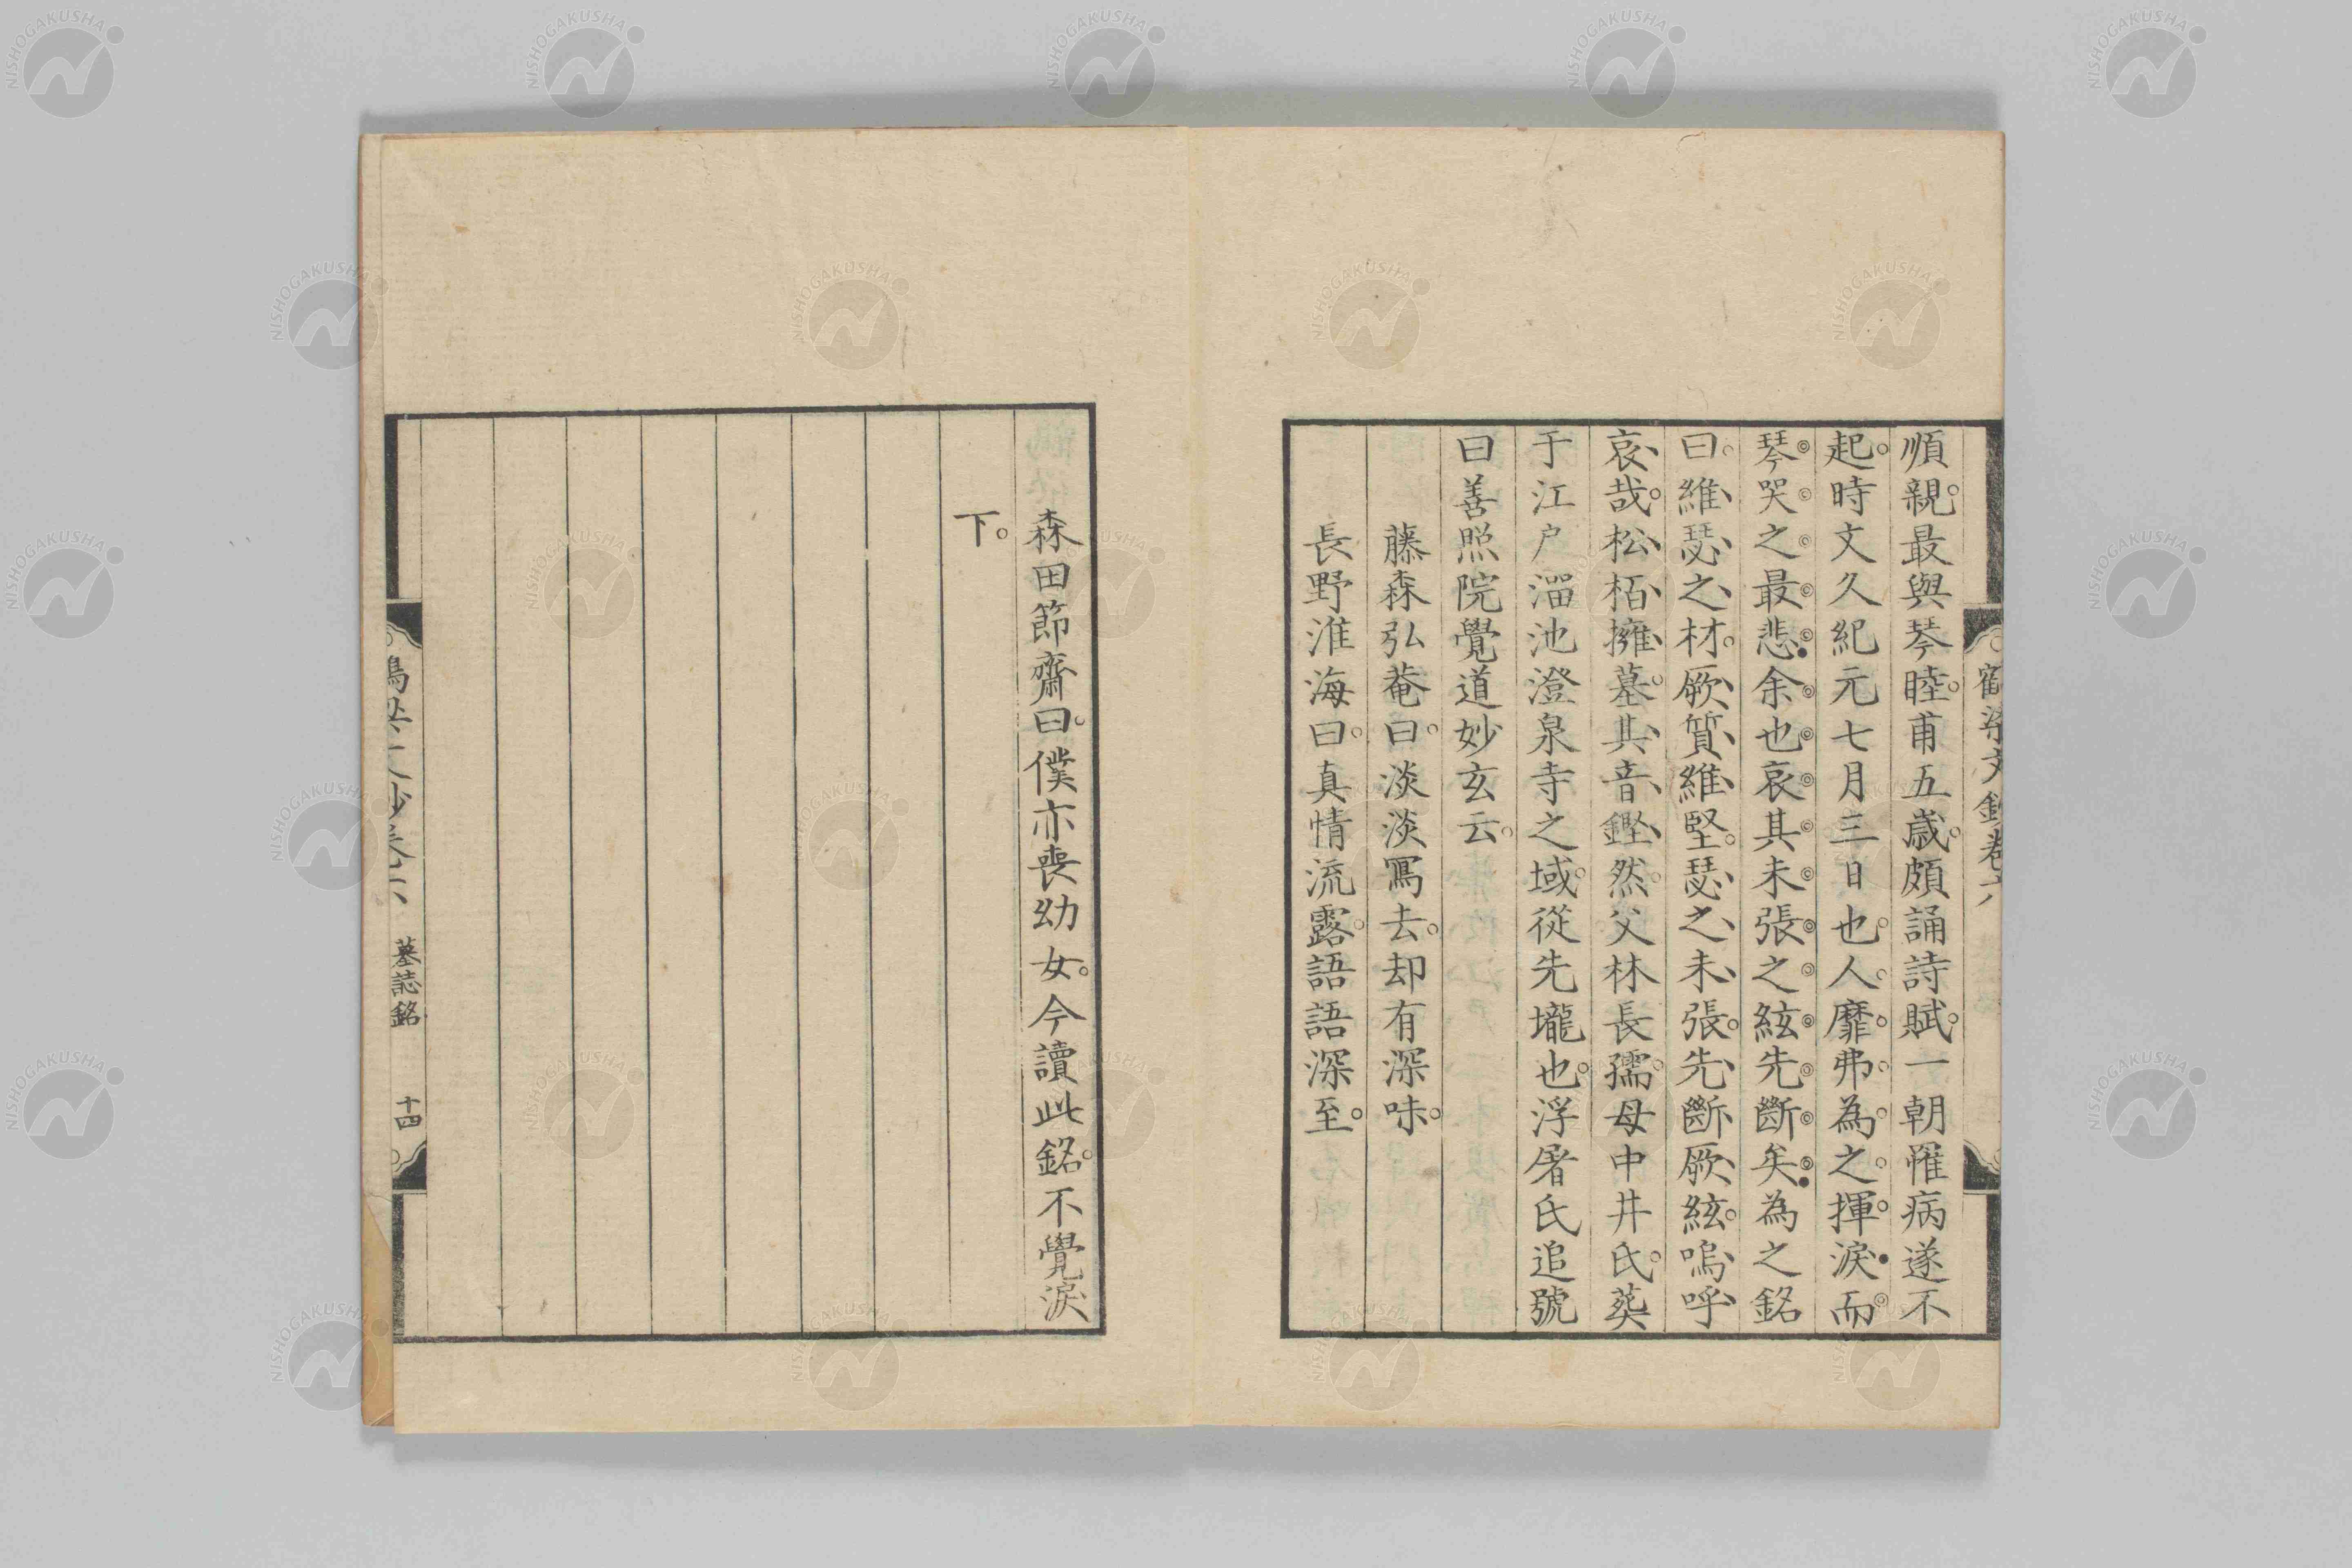 順親。最與琴睦。甫五歲。頗誦詩賦。一朝罹病遂不
起。時文久紀元七月三日也。人靡弗為之揮淚而
琴哭之最悲。余也哀其未張之絃先斷矣。為之銘
曰。維瑟之材。厥質維堅。瑟之未張。先斷厥絃。嗚呼
哀哉。松栢擁墓。其音鏗然。父林長孺。母中井氏。葬
于江戶溜池澄泉寺之域。從先壠也。浮屠氏追號
曰善照院覺道妙玄云。
藤森弘菴曰。淡淡寫去。却有深味。
長野淮海曰。真情流露。語語深至。
森田節齋曰。僕亦喪幼女。今讀此銘。不覺淚
下。
鶴梁文鈔卷六
墓誌銘
十四
NISHOGAKUSHA